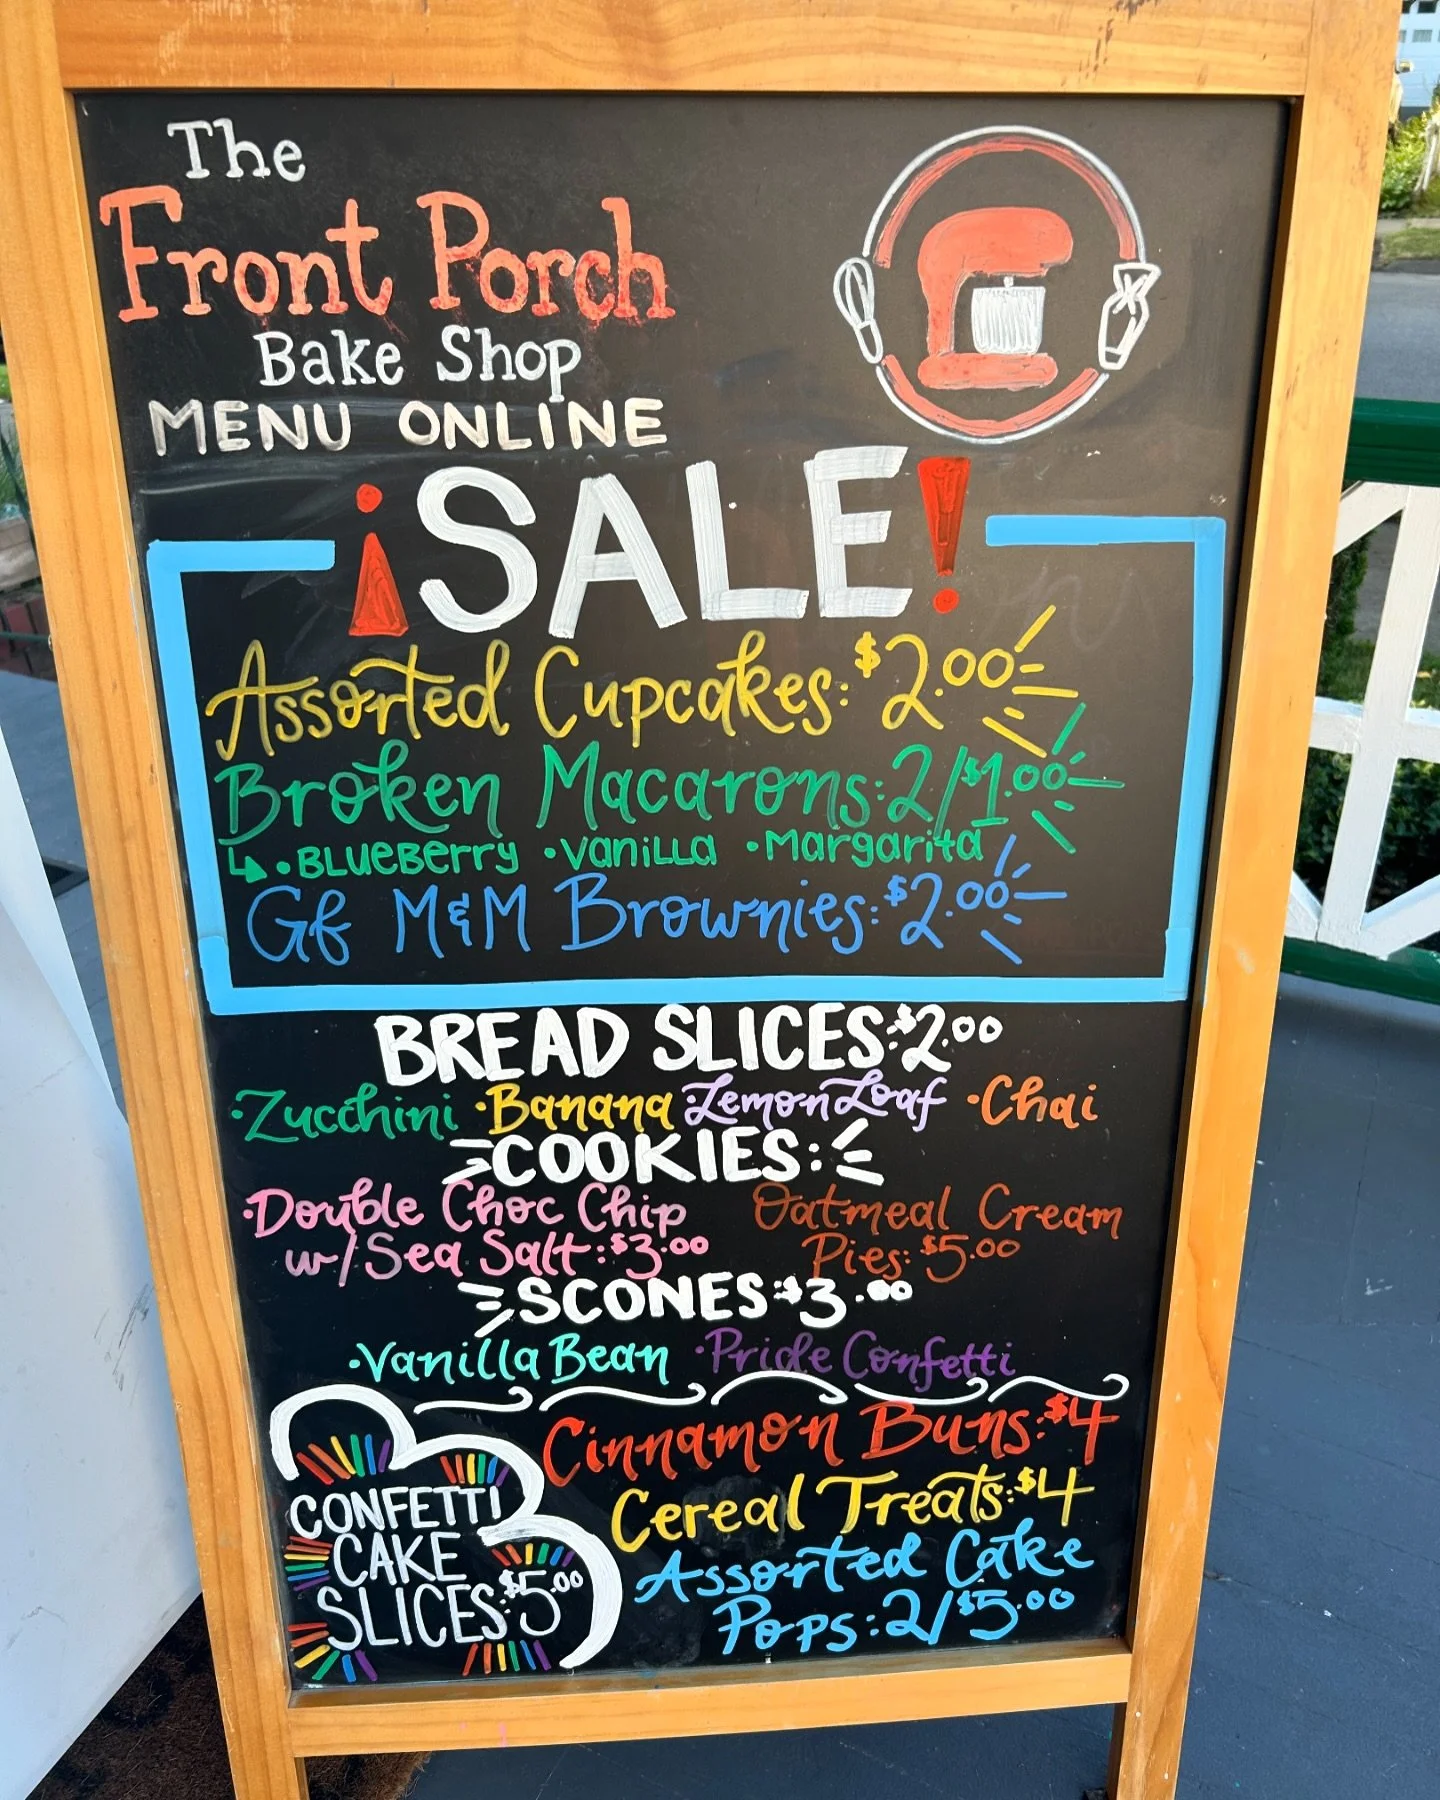 The
Front Porch
Bake Shop
MENU ONLINE
¡SALE!
Assorted Cupcakes: $2.00
Broken Macarons: 2/$1.00
• Blueberry • Vanilla • Margarita
Gf M&M Brownies: $2.00
BREAD SLICES: $2.00
• Zucchini • Banana Lemon Loaf • Chai
COOKIES:
• Double Choc Chip
w/ Sea Salt: $3.00
Oatmeal Cream
Pies: $5.00
SCONES: $3.00
• Vanilla Bean • Pride Confetti
CONFETTI
CAKE
SLICES: $5.00
Cinnamon Buns: $4
Cereal Treats: $4
Assorted Cake
Pops: 2/$5.00